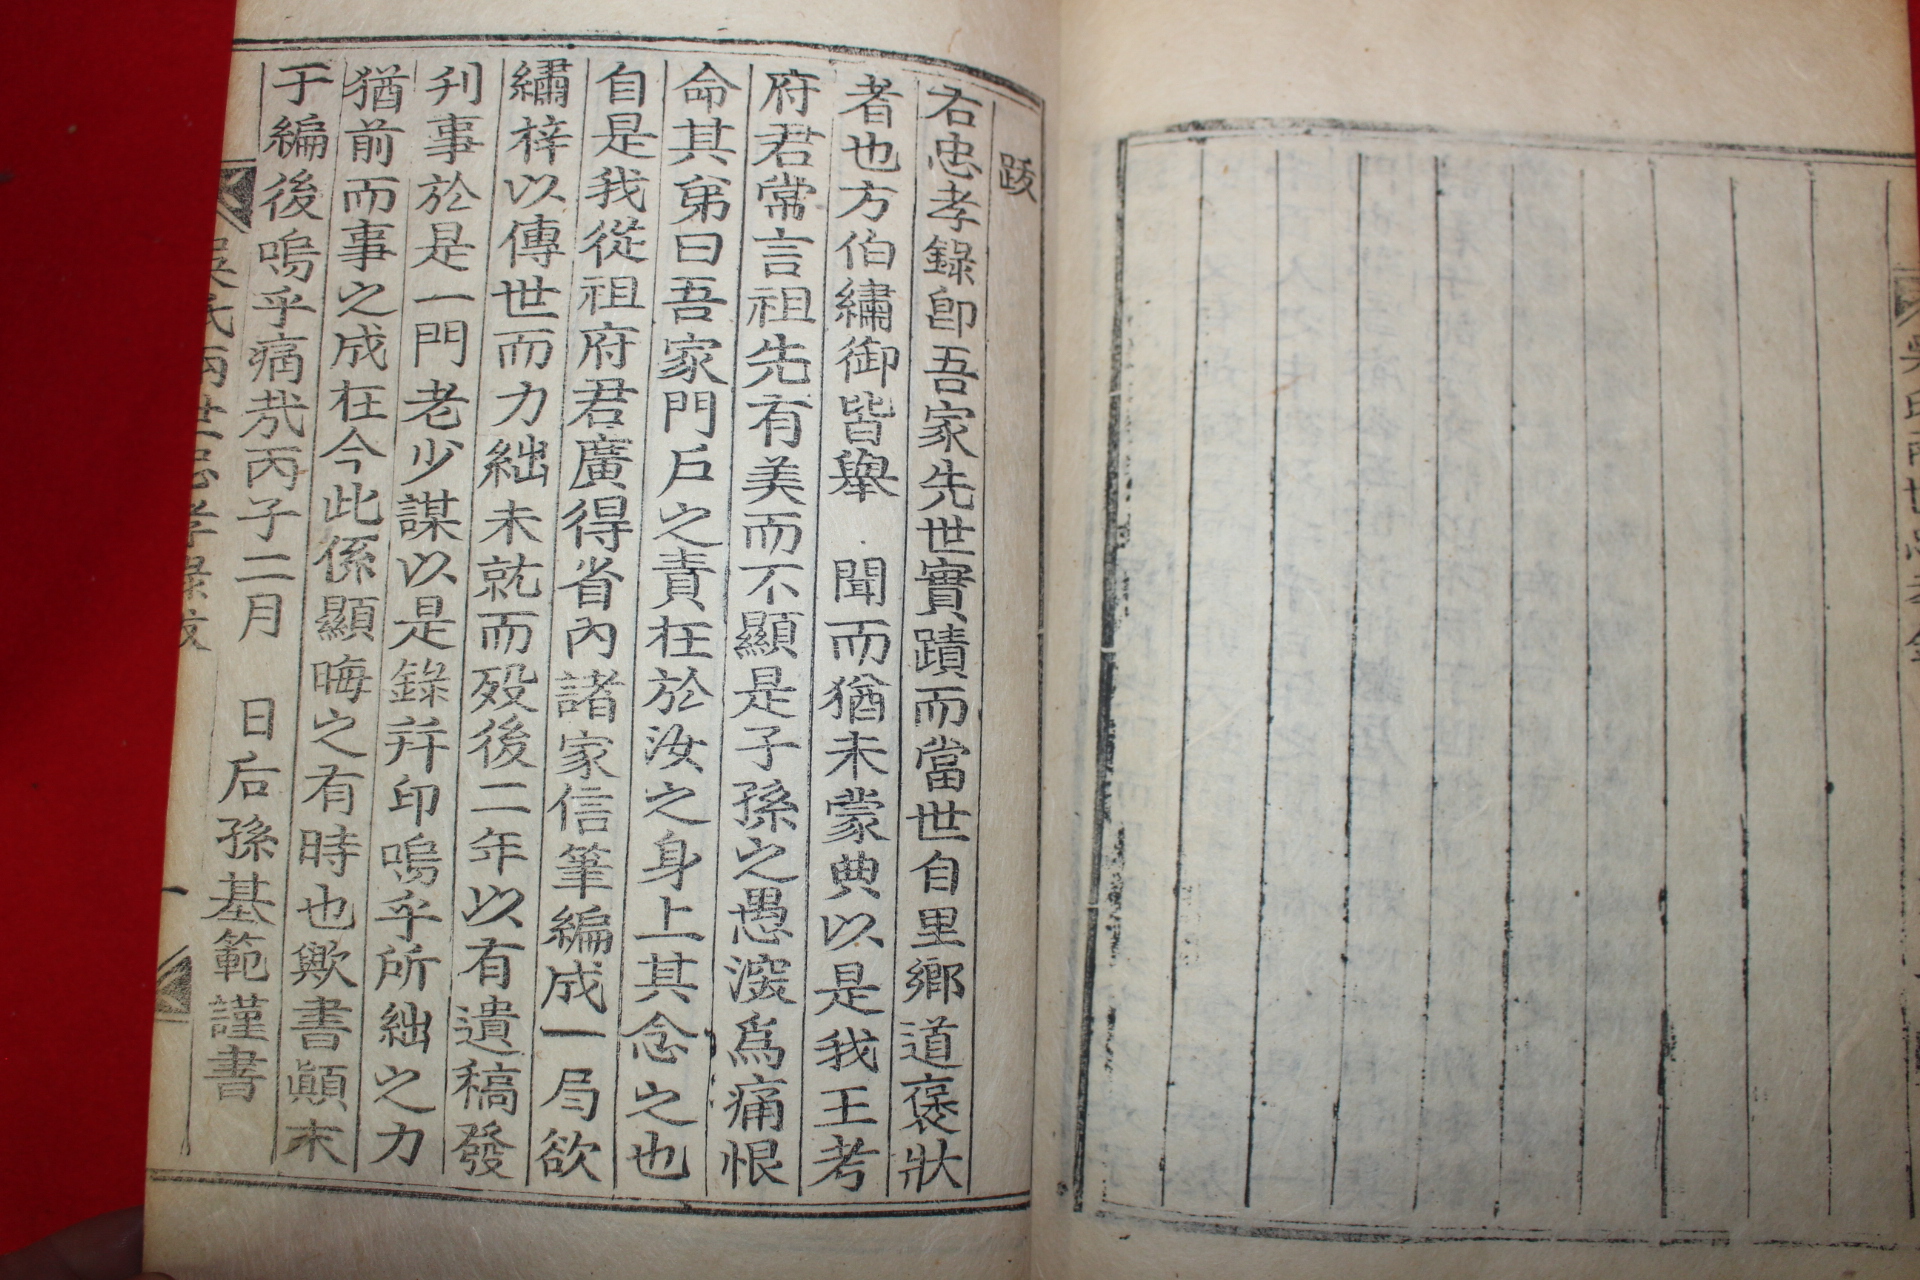 跋
右忠孝錄卽吾家先世實蹟而當世自里鄕道褒狀
者也方伯繡御皆擧 聞而猶未蒙典以是我王考
府君常言祖先有美而不顯是子孫之愚深爲痛恨
命其弟曰吾家門戶之責在於汝之身上其念之也
自是我從祖府君廣得省內諸家信筆編成一局欲
繡梓以傳世而力絀未就而歿後二年以有遺稿發
刊事於是一門老少謀以是錄幷印嗚乎所絀之力
猶前而事之成在今此係顯晦之有時也歟書顚末
于編後嗚乎痛哉丙子二月 日后孫基範謹書
吳氏兩世忠孝錄跋 一